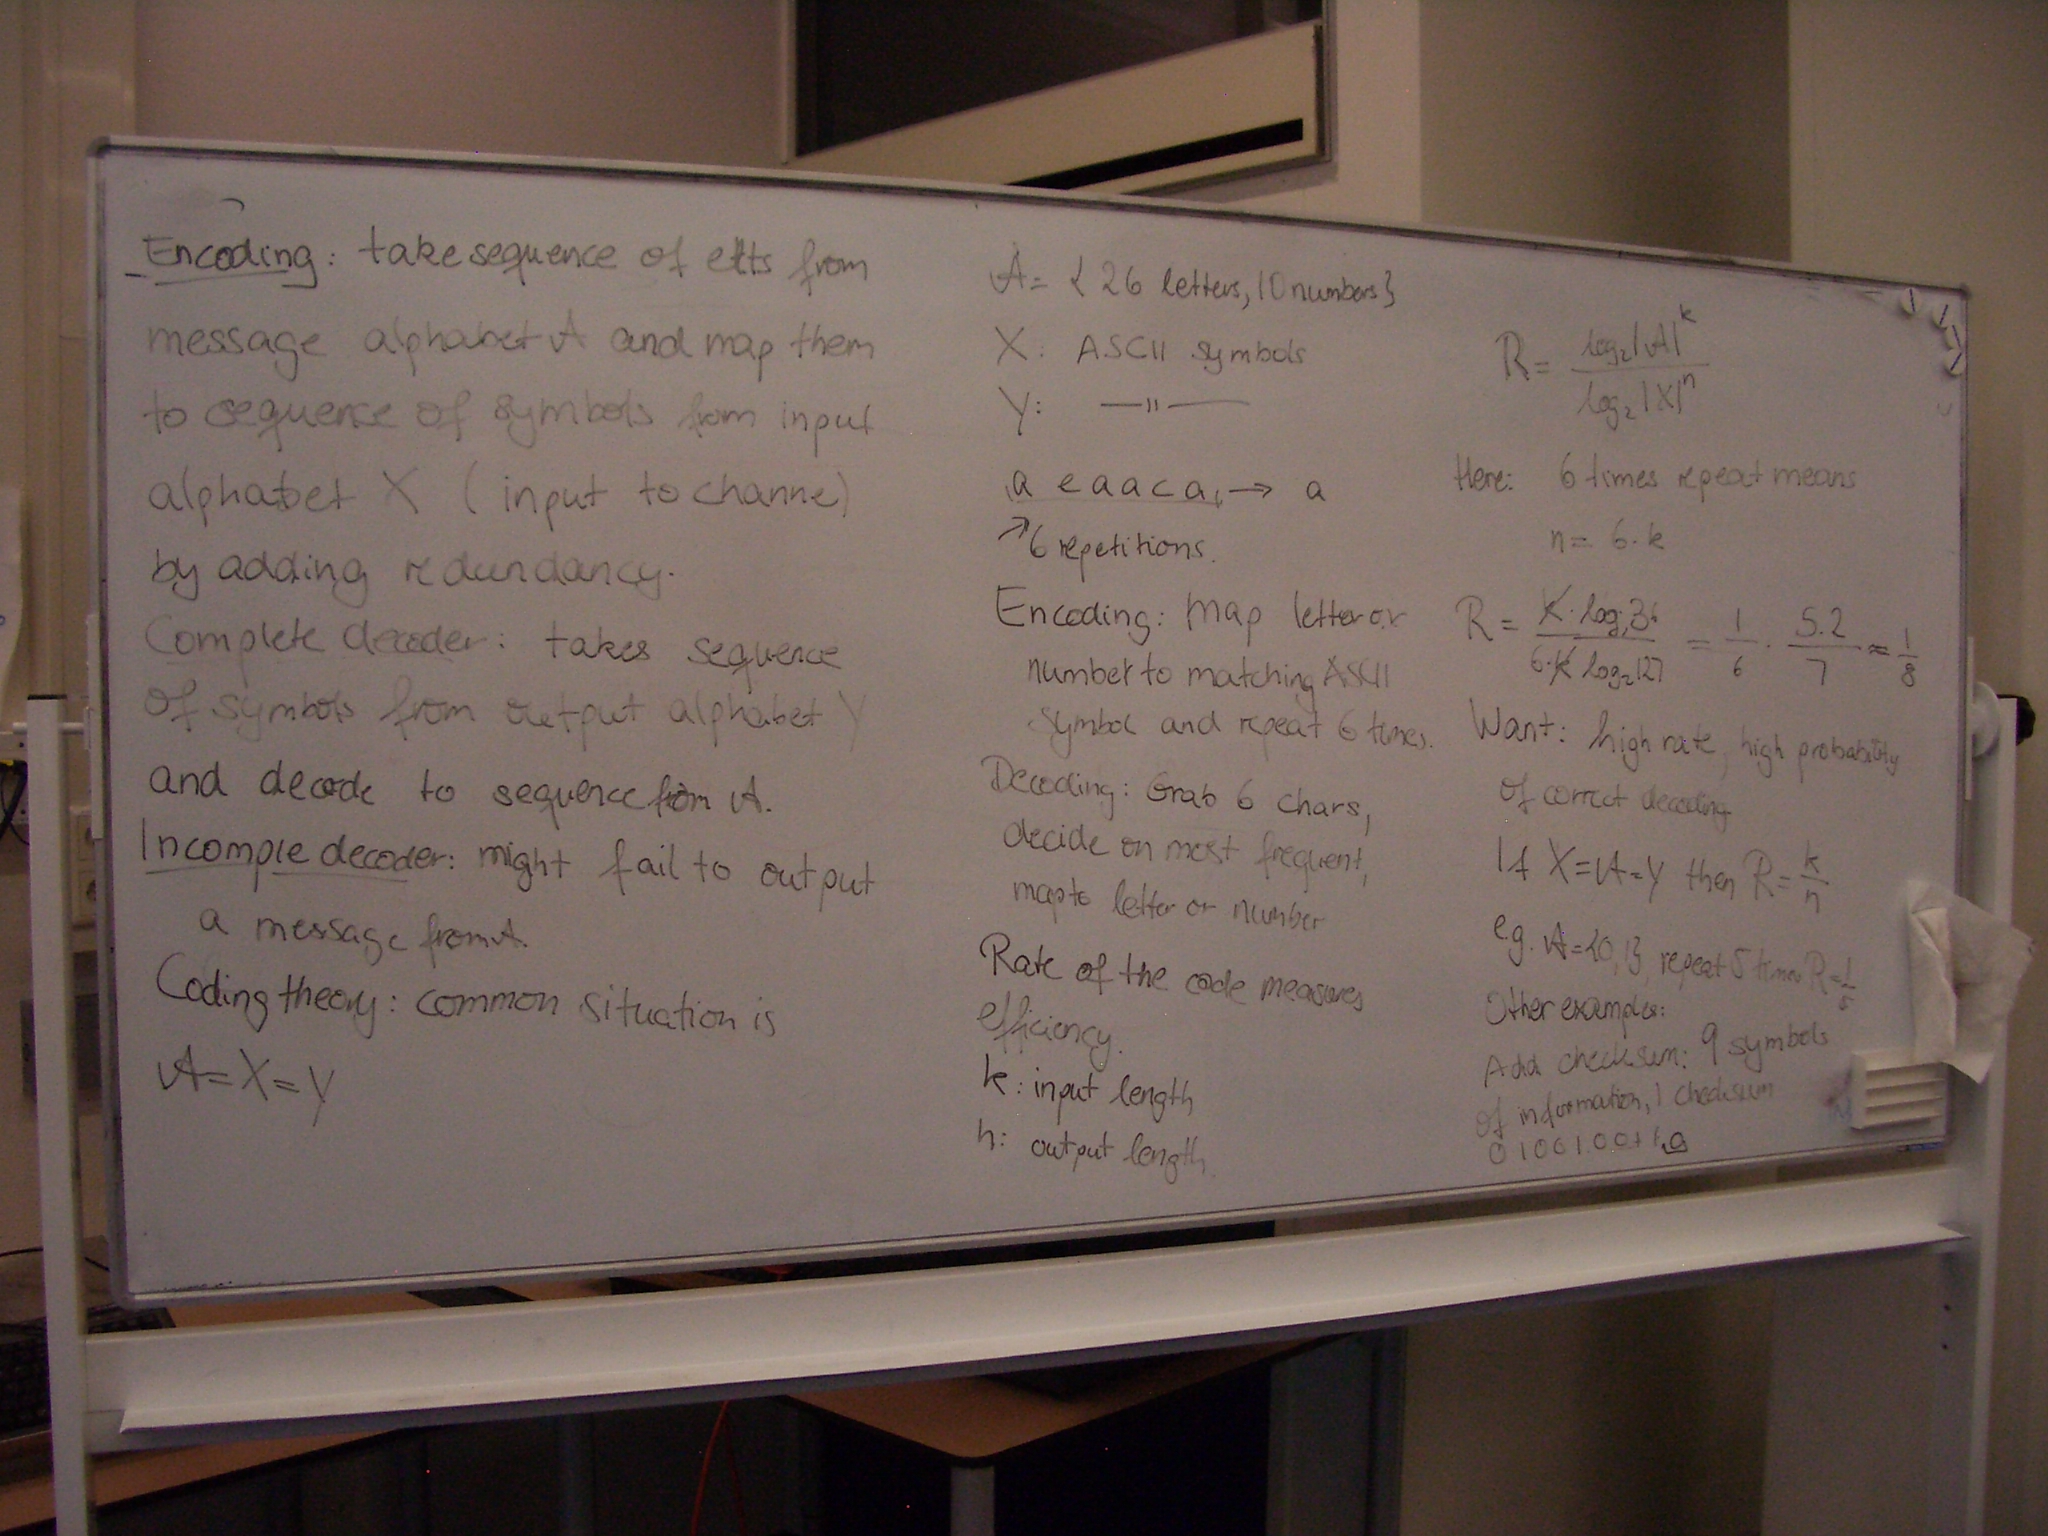 Encoding: take sequence of elts from
message alphabet A and map them
to sequence of symbols from input
alphabet X (input to channel)
by adding redundancy.
Complete decoder: takes sequence
of symbols from output alphabet Y
and decode to sequence from A.
Incomple decoder: might fail to output
a message from A.
Coding theory: common situation is
A = X = Y
A = {26 letters, 10 numbers}
X: ASCII symbols
Y: —"—
a e a a c a → a
↗ 6 repetitions.
Encoding: Map letter or
number to matching ASCII
symbol and repeat 6 times.
Decoding: Grab 6 chars,
decide on most frequent,
map to letter or number
Rate of the code measures
efficiency.
k: input length
n: output length.
R = log₂|A|^k / log₂|X|^n
Here: 6 times repeat means
n = 6·k
R = K·log₂36 / 6·K log₂127 = 1/6 · 5.2/7 ≈ 1/8
Want: high rate, high probability
of correct decoding
If X=A=Y then R = k/n
e.g. A={0,1}, repeat 5 times R=1/5
Other examples:
Add checksum: 9 symbols
of information, 1 checksum